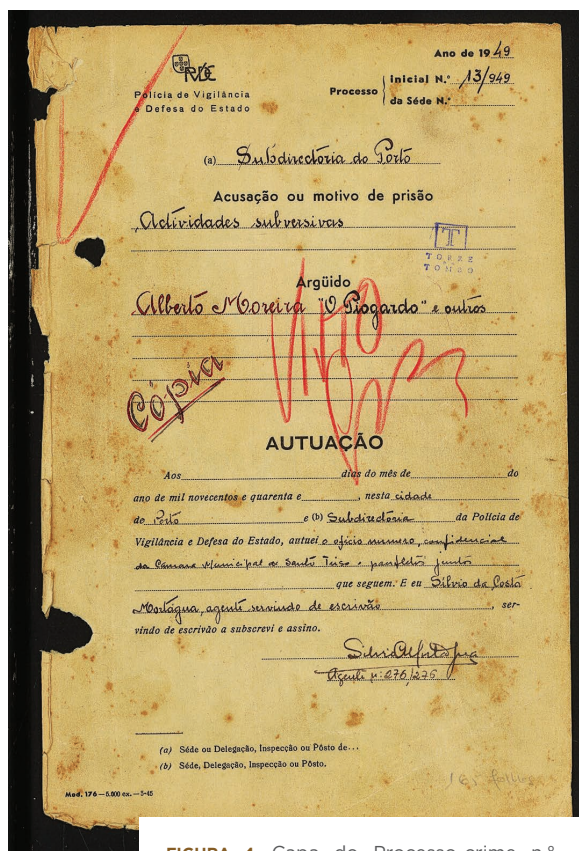 Ano de 1949
PVDE
Polícia de Vigilância
e Defesa do Estado
Processo
Inicial N.º 13/949
da Séde N.º
(a) Subdirectoria do Porto
Acusação ou motivo de prisão
Actividades subversivas
TORRE
TOMBO
Argüido
Alberto Moreira "O Piogardo" e outros
Cópia
AUTUAÇÃO
Aos dias do mês de do
ano de mil novecentos e quarenta e , nesta cidade
do Porto e (b) Subdirectoria da Polícia de
Vigilância e Defesa do Estado, autuei o oficio numero, confidencial
da Camara Municipal de Santo Tirso e panfletos juntos
que seguem. E eu Silvio da Costa
Mortágua, agente servindo de escrivão , ser-
vindo de escrivão a subscrevi e assino.
Agente n.º 276/276
(a) Séde ou Delegação, Inspecção ou Pôsto de...
(b) Séde, Delegação, Inspecção ou Pôsto.
Mod. 176 — 5.000 ex. — 5-45
FIGURA 4 Capa do Processo-crime n.º